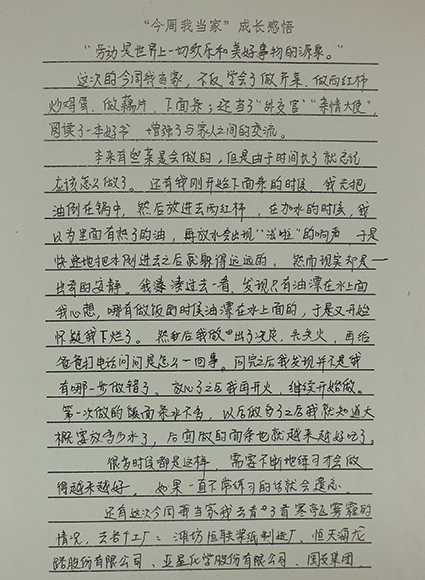 “今周我当家”成长感悟
“劳动是世界上一切欢乐和美好事物的源泉。”
这次的今周我当家，不仅学会了做芹菜、做西红柿
炒鸡蛋、做藕片、下面条；还当了“外交官”“亲情大使”，
阅读了一本好书，增强了与家人之间的交流。
本来有些菜是会做的，但是由于时间长了就忘记
应该怎么做了。还有我刚开始下面条的时候，我先把
油倒在锅中，然后放进去西红柿，在加水的时候，我
以为里面有热了的油，再放水会出现“滋啦”的响声，于是
快速地把水倒进去之后就躲得远远的。然而现实却是一
出奇的安静。我凑凑过去一看，发现只有油漂在水上面
我心想，哪有做饭的时候油漂在水上面的，于是又开始
怀疑我下烂了。然后我做出了决定，先关火，再给
爸爸打电话问问是怎么一回事。问完之后我发现并不是我
有哪一步做错了。放心了之后我再开火，继续开始做。
第一次做的面条水不多，以后做多了之后我就知道大
概要放多少水了，后面做的面条也就越来越好吃了。
很多时候都是这样，需要不断地练习才会做
得越来越好，如果一直不常练习的话就会遗忘。
还有这次今周我当家我去看了看寒亭区雾霾的
情况，去者个工厂：潍坊恒联浆纸制造厂、恒天海龙
股份有限公司、亚星化学股份有限公司、国圣集团